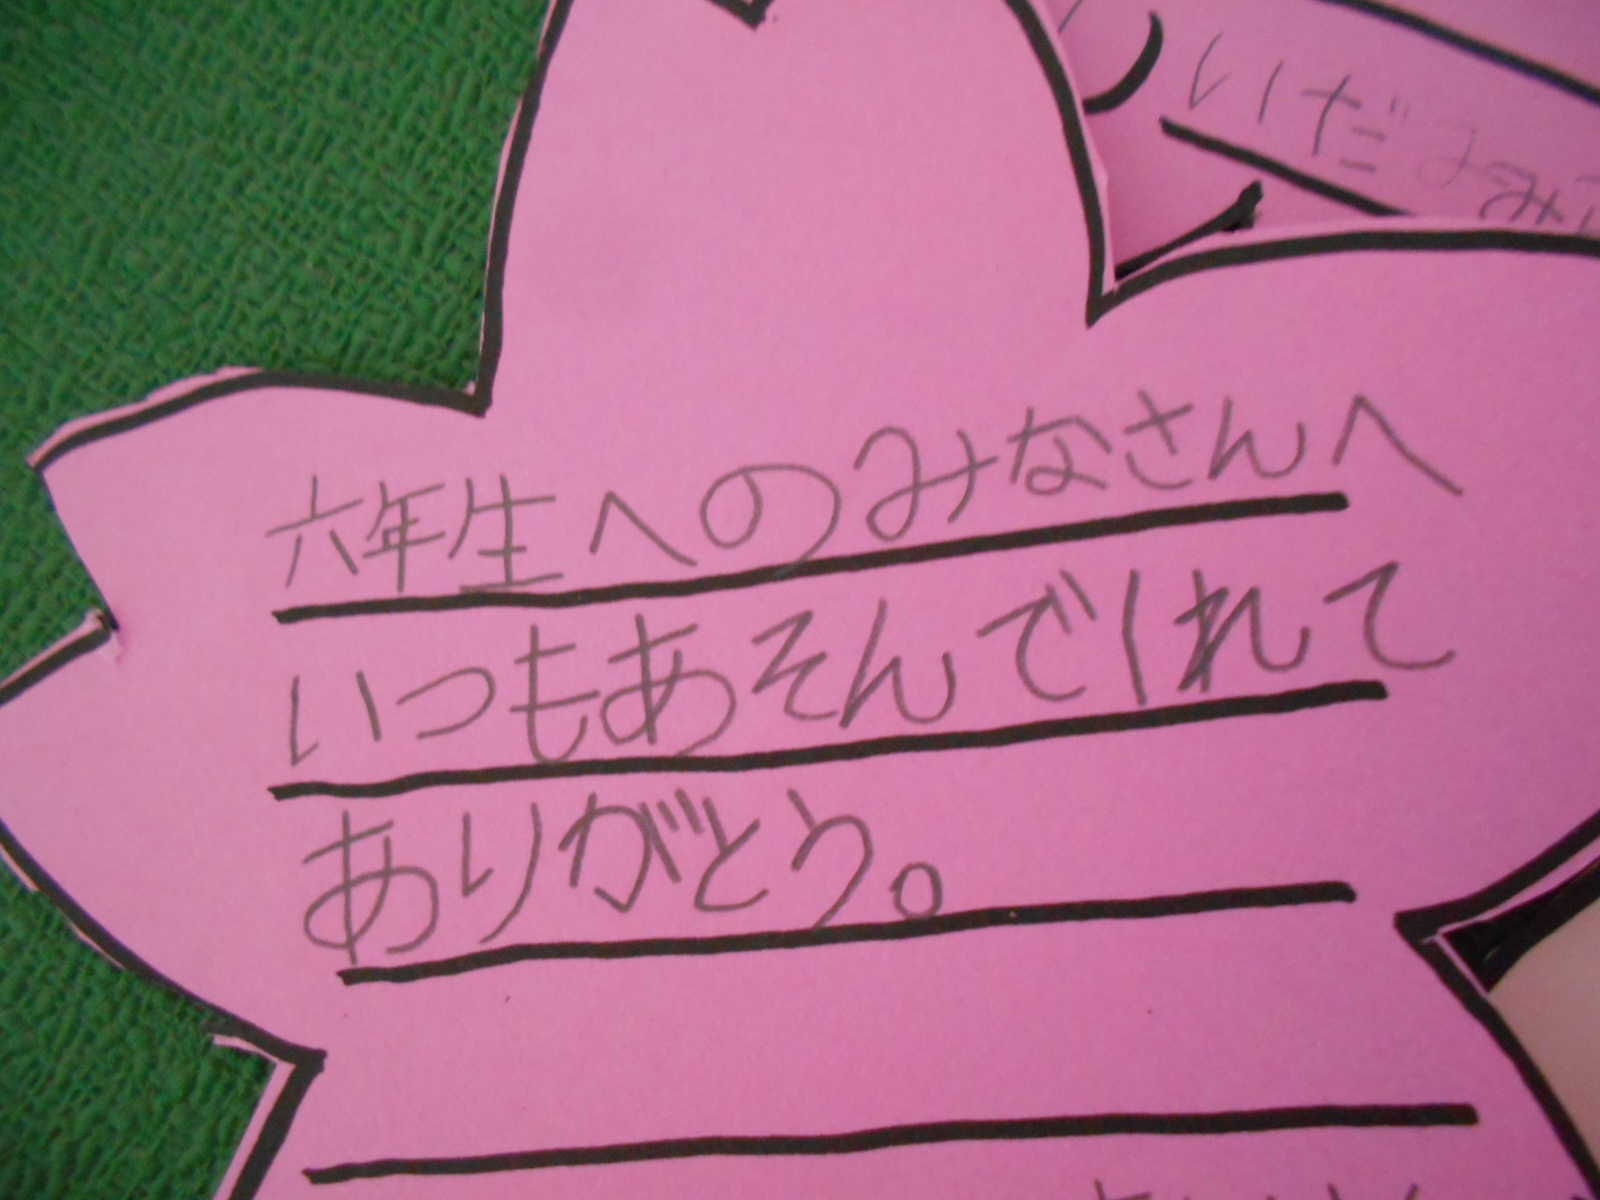 いいだみ
六年生へのみなさんへ
いつもあそんでくれて
ありがとう。